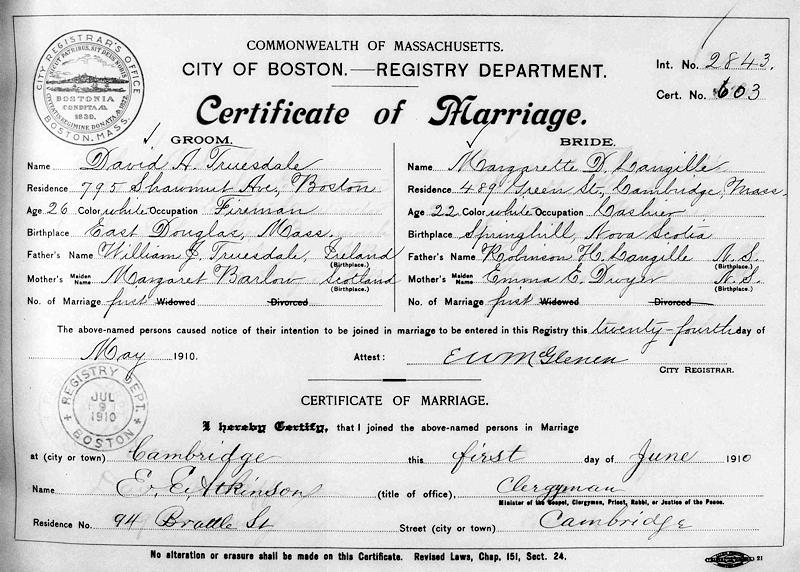 COMMONWEALTH OF MASSACHUSETTS.
CITY OF BOSTON.—REGISTRY DEPARTMENT.
Int. No. 2843.
Cert. No. 603
CITY REGISTRAR'S OFFICE
BOSTON, MASS.
SICUT PATRIBUS, SIT DEUS NOBIS
BOSTONIA
CONDITA A.D.
1630.
CIVITATIS REGIMINE DONATA A.D. 1822.
Certificate of Marriage.
GROOM.
Name David A. Truesdale
Residence 795 Shawmut Ave, Boston
Age 26 Color white Occupation Fireman
Birthplace East Douglas, Mass.
Father's Name William J. Truesdale, Ireland
(Birthplace.)
Mother's Maiden Name Margaret Barlow Scotland
(Birthplace.)
No. of Marriage first Widowed Divorced
BRIDE.
Name Margarette D. Langille
Residence 489 Green St., Cambridge, Mass.
Age 22 Color white Occupation Cashier
Birthplace Springhill, Nova Scotia
Father's Name Robinson H. Langille N. S.
(Birthplace.)
Mother's Maiden Name Emma E. Dwyer N. S.
(Birthplace.)
No. of Marriage first Widowed Divorced
The above-named persons caused notice of their intention to be joined in marriage to be entered in this Registry this twenty-fourth day of
May 1910. Attest: E W McGlenen
CITY REGISTRAR.
REGISTRY DEPT.
JUL
9
1910
BOSTON
CERTIFICATE OF MARRIAGE.
I hereby Certify, that I joined the above-named persons in Marriage
at (city or town) Cambridge this first day of June 1910
Name E. E. Atkinson (title of office), Clergyman
Minister of the Gospel, Clergyman, Priest, Rabbi, or Justice of the Peace.
Residence No. 94 Brattle St Street (city or town) Cambridge
No alteration or erasure shall be made on this Certificate. Revised Laws, Chap. 151, Sect. 24.
21